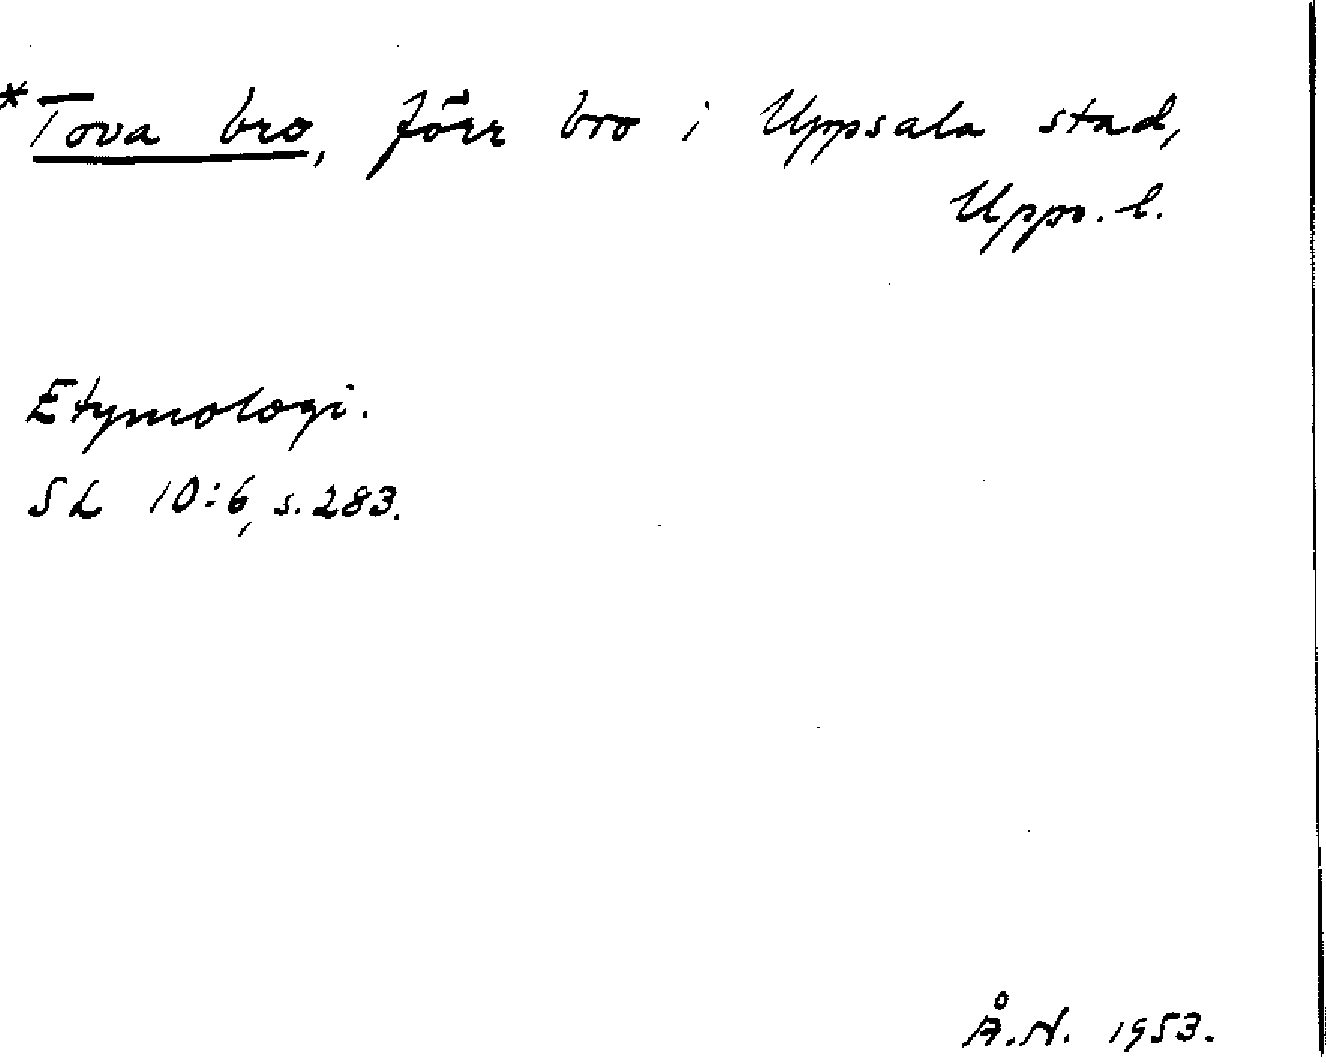 *Tova bro, förr bro i Uppsala stad,
Upps. l.
Etymologi.
SL 10:6, s. 283.
Å.N. 1953.